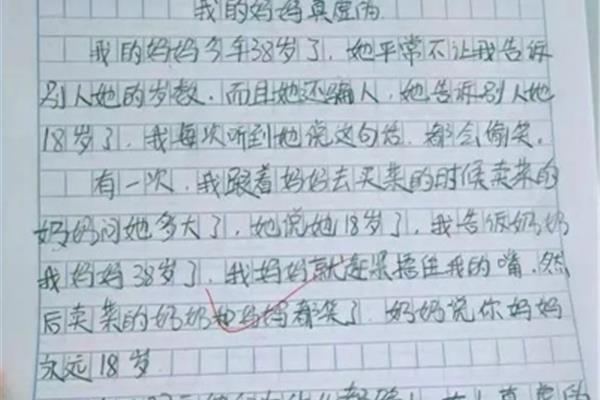 我的妈妈真虚伪
我的妈妈今年38岁了，她平常不让我告诉
别人她的岁数，而且她还骗人，她告诉别人她
18岁了，我每次听到她说这句话，都会偷笑。
有一次，我跟着妈妈去买菜的时候卖菜的
奶奶问她多大了，她说她18岁了，我告饭奶奶
我妈妈38岁了，我妈妈就赶紧捂住我的嘴，然
后卖菜的奶奶和妈妈都笑了，奶奶说你妈妈
永远18岁